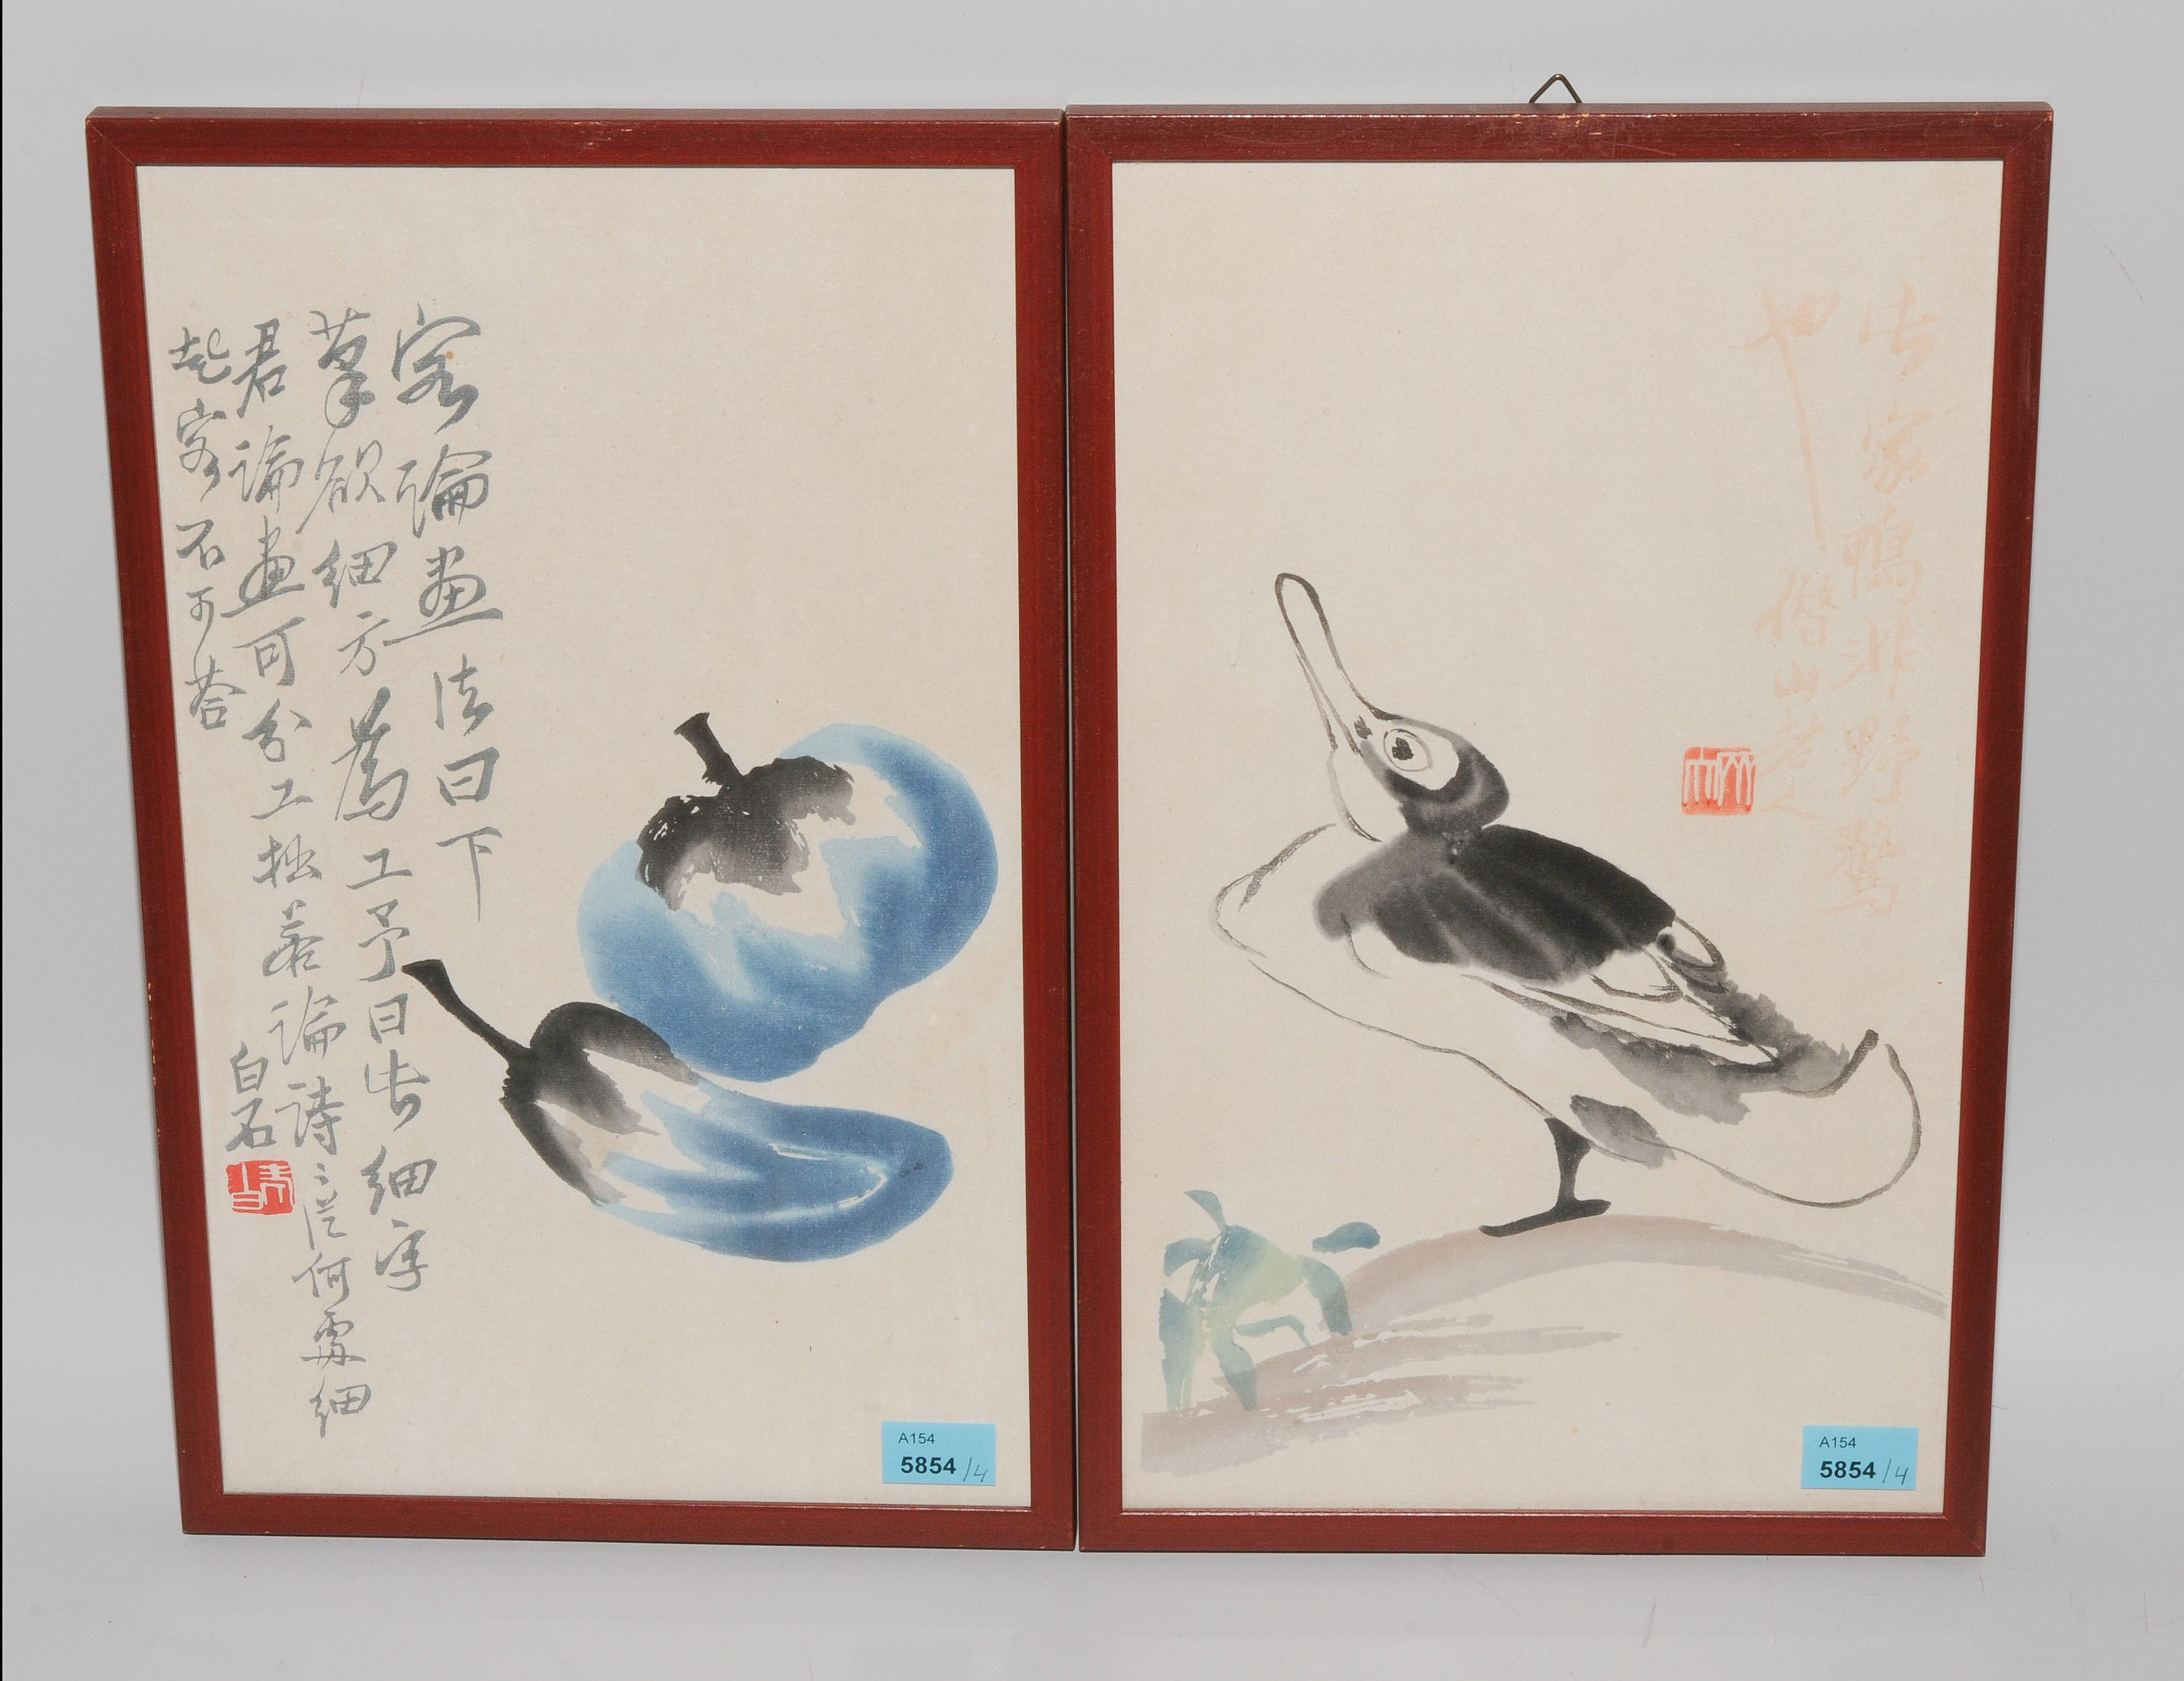 客論畫法曰下
筆欲細方為工予曰此細字
君論畫可分工拙若論詩從何處細
起客不可答
白石
此家鴨非野鶩
也
借山老人
A154
5854 /4
A154
5854 /4